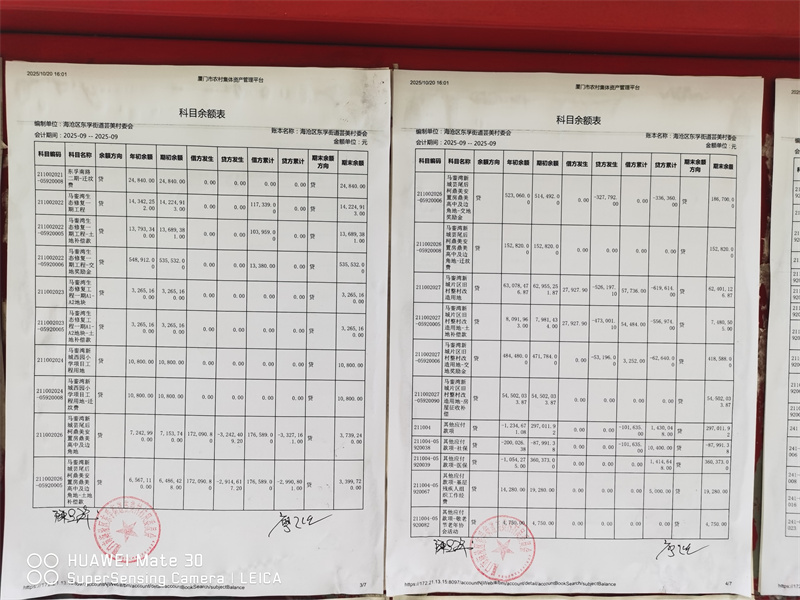 2025/10/20 16:01
厦门市农村集体资产管理平台
科目余额表
编制单位：海沧区东孚街道芸美村委会
账本名称：海沧区东孚街道芸美村委会
会计期间：2025-09 -- 2025-09
金额单位：元
科目编码 科目名称 余额方向 年初余额 期初余额 借方发生 贷方发生 借方累计 贷方累计 期末余额方向 期末余额
211002021-05920008 东孚南路二期-迁坟费 贷 24,840.00 24,840.00 0.00 0.00 0.00 0.00 贷 24,840.00
211002022 马銮湾生态修复一期工程 贷 14,342,252.00 14,224,913.00 0.00 0.00 117,339.00 0.00 贷 14,224,913.00
211002022-05920005 马銮湾生态修复一期工程-土地补偿款 贷 13,793,340.00 13,689,381.00 0.00 0.00 103,959.00 0.00 贷 13,689,381.00
211002022-05920006 马銮湾生态修复一期工程-交地奖励金 贷 548,912.00 535,532.00 0.00 0.00 13,380.00 0.00 贷 535,532.00
211002023 马銮湾生态修复工程一期A1-A2地块 贷 3,265,160.00 3,265,160.00 0.00 0.00 0.00 0.00 贷 3,265,160.00
211002023-05920005 马銮湾生态修复工程一期A1-A2地块-土地补偿款 贷 3,265,160.00 3,265,160.00 0.00 0.00 0.00 0.00 贷 3,265,160.00
211002024 马銮湾新城西园小学项目工程用地 贷 10,800.00 10,800.00 0.00 0.00 0.00 0.00 贷 10,800.00
211002024-05920008 马銮湾新城西园小学项目工程用地-迁坟费 贷 10,800.00 10,800.00 0.00 0.00 0.00 0.00 贷 10,800.00
211002026 马銮湾新城芸尾后柯鼎美安置房鼎美高中及边角地 贷 7,242,990.00 7,153,740.00 172,090.80 -3,242,409.20 176,589.00 -3,327,161.00 贷 3,739,240.00
211002026-05920005 马銮湾新城芸尾后柯鼎美安置房鼎美高中及边角地-土地补偿款 贷 6,567,110.00 6,486,420.00 172,090.80 -2,914,617.20 176,589.00 -2,990,801.00 贷 3,399,720.00
3/7
2025/10/20 16:01
厦门市农村集体资产管理平台
科目余额表
编制单位：海沧区东孚街道芸美村委会
账本名称：海沧区东孚街道芸美村委会
会计期间：2025-09 -- 2025-09
金额单位：元
科目编码 科目名称 余额方向 年初余额 期初余额 借方发生 贷方发生 借方累计 贷方累计 期末余额方向 期末余额
211002026-05920006 马銮湾新城芸尾后柯鼎美安置房鼎美高中及边角地-交地奖励金 贷 523,060.00 514,492.00 0.00 -327,792.00 0.00 -336,360.00 贷 186,700.00
211002026-05920008 马銮湾新城芸尾后柯鼎美安置房鼎美高中及边角地-迁坟费 贷 152,820.00 152,820.00 0.00 0.00 0.00 0.00 贷 152,820.00
211002027 马銮湾新城片区旧村整村改造用地 贷 27,927.90 57,736.00 贷
211002027-05920005 马銮湾新城片区旧村整村改造用地-土地补偿款 贷 27,927.90 54,484.00 贷
211002027-05920006 马銮湾新城片区旧村整村改造用地-交地奖励金 贷 484,480.00 471,784.00 0.00 3,252.00 贷
211002027-05920090 马銮湾新城片区旧村整村改造用地-房屋征收补偿 贷 54,502,033.87 54,502,033.87 0.00 0.00 0.00 0.00 贷 54,502,033.87
211004 其他应付款项 贷 297,011.92 0.00 0.00 贷 297,011.92
211004-05920038 其他应付款项-社保 贷 0.00 0.00 10,400.00 贷
211004-05920039 其他应付款项-医保 贷 360,373.00 0.00 0.00 0.00 贷 360,373.00
211004-05920067 其他应付款项-基层残疾人组织工作经费 贷 14,280.00 19,280.00 0.00 0.00 0.00 5,000.00 贷 19,280.00
其他应付款项-敬老节老年协会活动 贷 4,750.00 4,750.00 0.00 0.00 0.00 0.00 贷 4,750.00
4/7
HUAWEI Mate 30
SuperSensing Camera | LEICA